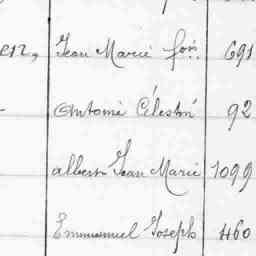 Jean Marie fois 691
Antoine Célestin 92
albert Jean Marie 1099
Emmanuel Joseph 460